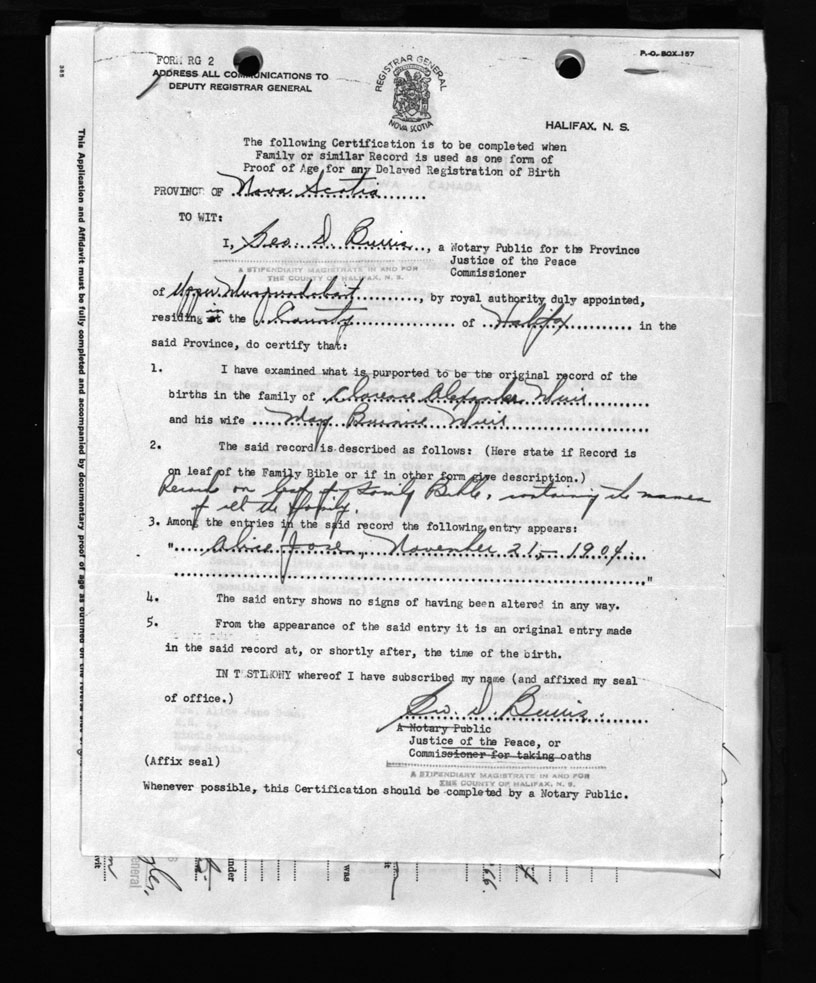 FORM RG 2
ADDRESS ALL COMMUNICATIONS TO
DEPUTY REGISTRAR GENERAL
REGISTRAR GENERAL
NOVA SCOTIA
P. O. BOX 157
HALIFAX, N. S.
The following Certification is to be completed when
Family or similar Record is used as one form of
Proof of Age for any Delayed Registration of Birth
PROVINCE OF Nova Scotia
TO WIT:
I, Geo. D. Burris, a Notary Public for the Province
Justice of the Peace
Commissioner
A STIPENDIARY MAGISTRATE IN AND FOR
THE COUNTY OF HALIFAX, N. S.
of Upper Musquodoboit, by royal authority duly appointed,
residing in the County of Halifax in the
said Province, do certify that:
1. I have examined what is purported to be the original record of the
births in the family of Clarence Alexander Muir
and his wife May Burnice Muir
2. The said record is described as follows: (Here state if Record is
on leaf of the Family Bible or if in other form give description.)
Record on leaf of Family Bible, containing the names
of all the family.
3. Among the entries in the said record the following entry appears:
" Alice Jose, November 21, 1904. "
4. The said entry shows no signs of having been altered in any way.
5. From the appearance of the said entry it is an original entry made
in the said record at, or shortly after, the time of the birth.
IN TESTIMONY whereof I have subscribed my name (and affixed my seal
of office.)
Geo. D. Burris
A Notary Public
Justice of the Peace, or
Commissioner for taking oaths
(Affix seal)
A STIPENDIARY MAGISTRATE IN AND FOR
THE COUNTY OF HALIFAX, N. S.
Whenever possible, this Certification should be completed by a Notary Public.
This Application and Affidavit must be fully completed and accompanied by documentary proof of age as outlined on the reverse
under
was
General